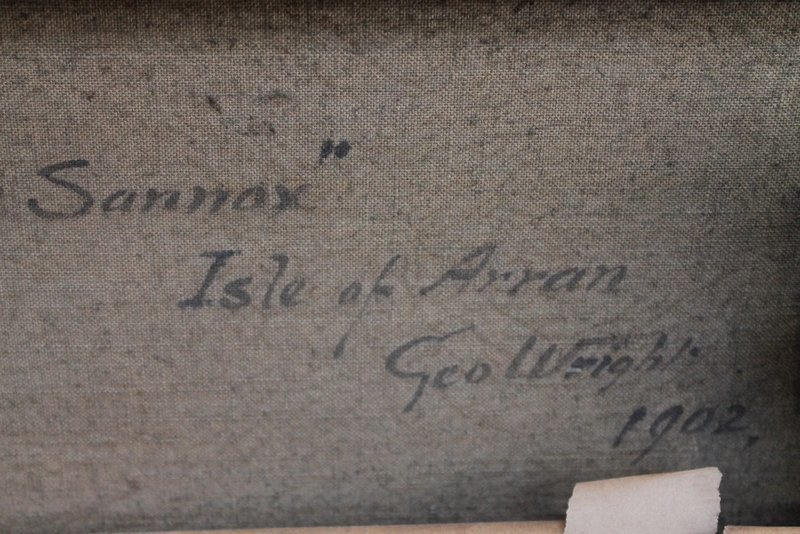 Sannox"
Isle of Arran
Geo Wright
1902.